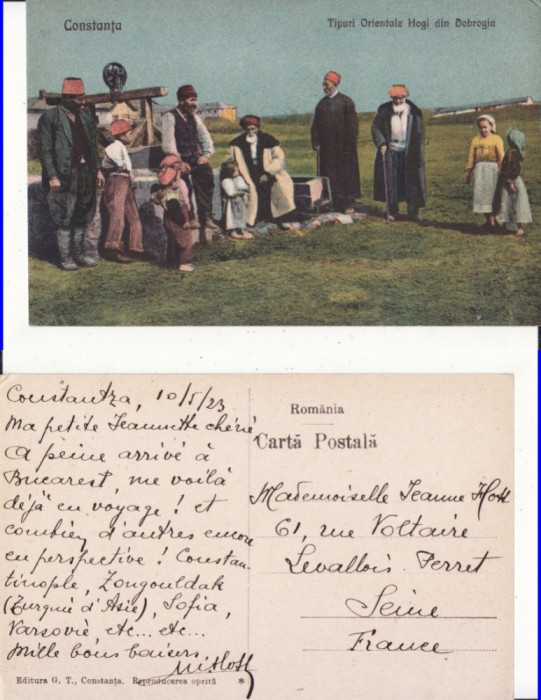 Constanța
Tipuri Orientale Hogi din Dobrogia
Constantza, 10/5/23
Ma petite Jeannette chérie
A peine arrivé à
Bucarest, me voilà
déjà en voyage! et
combien d'autres encore
en perspective! Constan-
tinople, Zongouldak
(Turquie d'Asie), Sofia,
Varsovie, etc... etc...
Mille bons baisers
România
Cartă Postală
Mademoiselle Jeanne
61, rue Voltaire
Levallois-Perret
Seine
France
Editura G. T., Constanța. Reproducerea oprită *